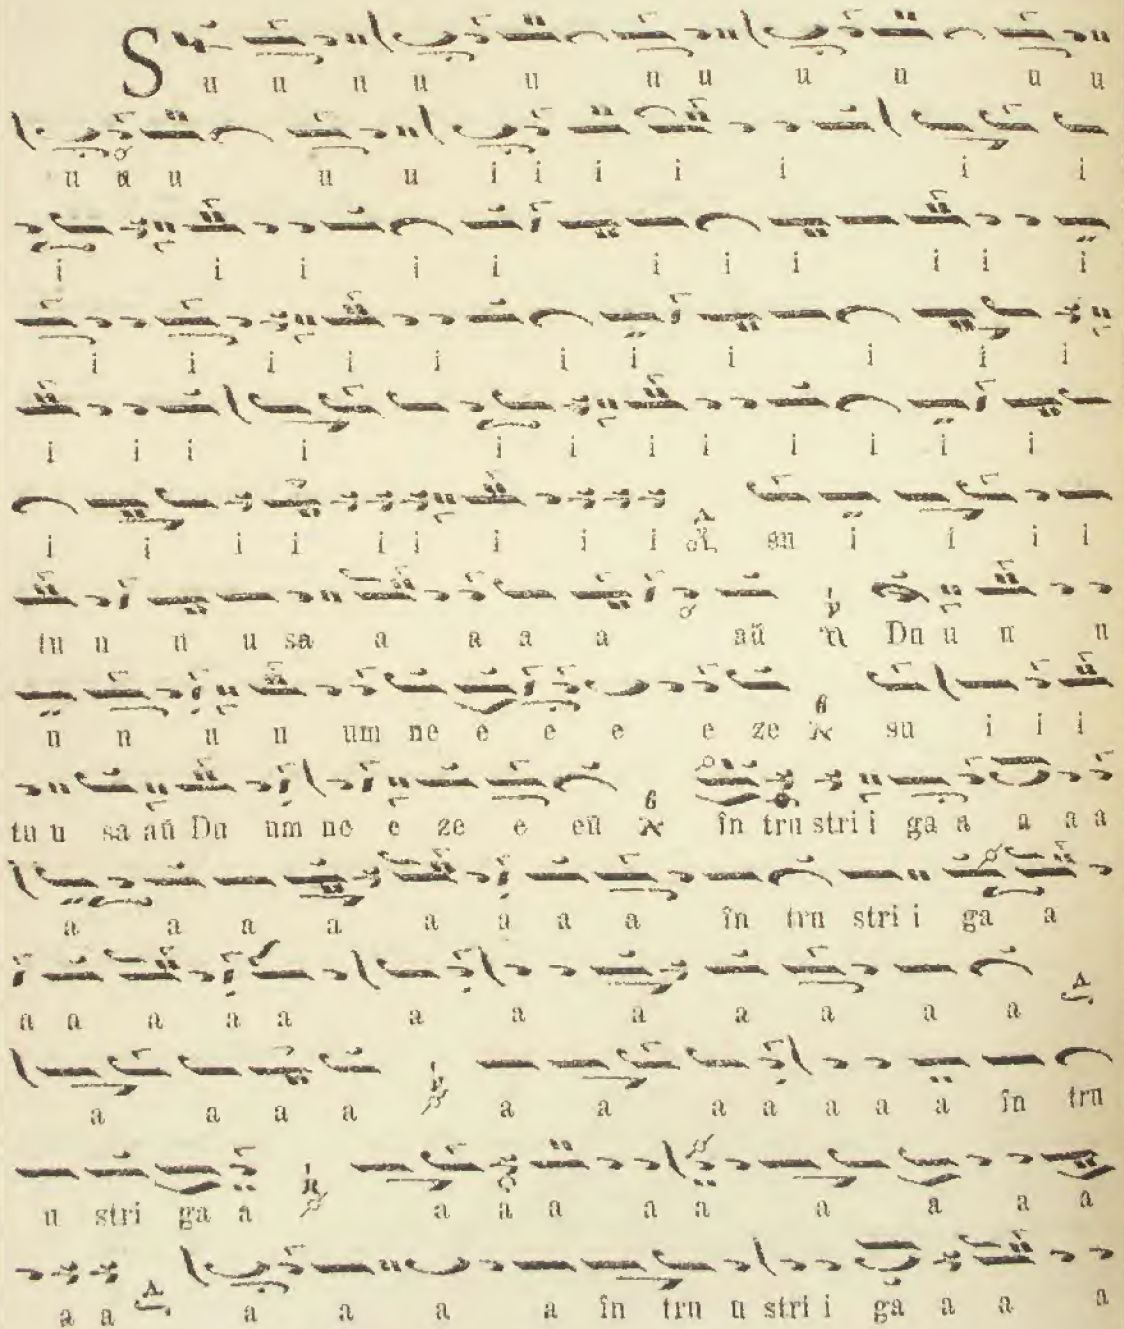 S u u u u u u u u u u u
u u u u u i i i i i i i
i i i i i i i i i i i
i i i i i i i i i i i
i i i i i i i i i i i i
i i i i i i i i i su i i i i
tu u u u sa a a a a aŭ Du u u u
u u u u um ne e e e e ze su i i i
tu u sa aŭ Du um ne e ze e eŭ în tru stri i ga a a a a
a a a a a a a a în tru stri i ga a
a a a a a a a a a a a a
a a a a a a a a a a a în tru
u stri ga a a a a a a a a a a
a a a a a a în tru u stri i gă a a a